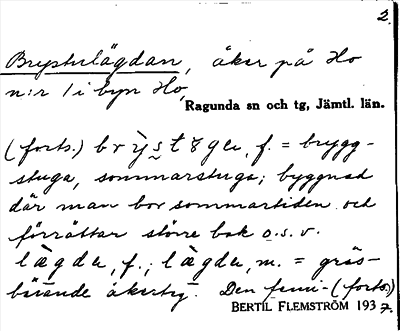 2.
Brystulägdan, åker på Ho
n:r 1 i byn Ho,
Ragunda sn och tg, Jämtl. län.
(forts.) f. = brygg-
stuga, sommarstuga; byggnad
där man bor sommartiden och
förrättar större bak o.s.v.
lägda, f.; lägda, m. = gräs-
bärande åkerteg. Den (forts.)
BERTIL FLEMSTRÖM 1937.